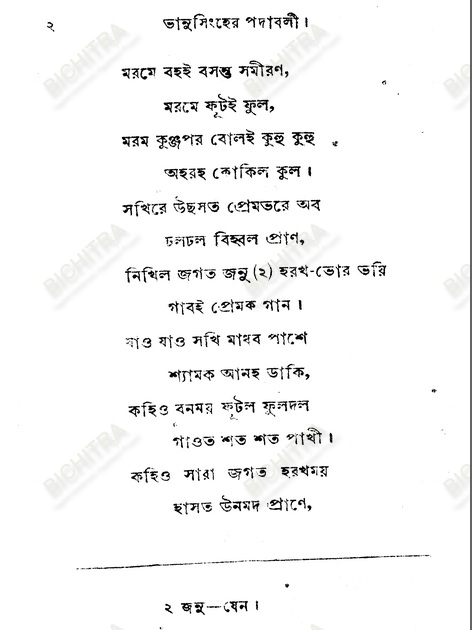 ২
ভানুসিংহের পদাবলী।
মরমে বহই বসন্ত সমীরণ,
মরমে ফূটই ফূল,
মরম কুঞ্জপর বোলই কুহু কুহু
অহরহ কোকিল কূল।
সখিরে উছসত প্রেমভরে অব
ঢলঢল বিহ্বল প্রাণ,
নিখিল জগত জনু (২) হরখ-ভোর ভয়ি
গাবই প্রেমক গান।
যাও যাও সখি মাধব পাশে
শ্যামক আনহ ডাকি,
কহিও বনময় ফূটল ফুলদল
গাওত শত শত পাখী।
কহিও সারা জগত হরখময়
হাসত উনমদ প্রাণে,
২ জনু—যেন।
BICHITRA
BICHITRA
BICHITRA
BICHITRA
BICHITRA
BICHITRA